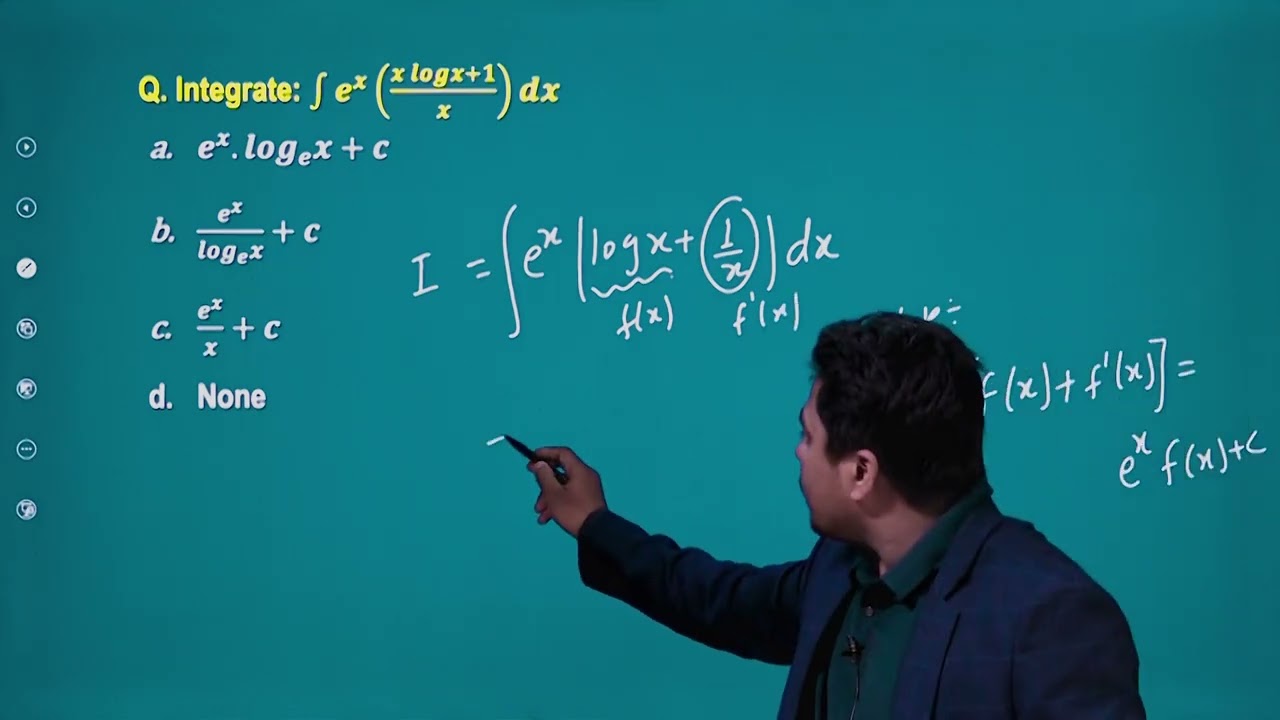 Q. Integrate: ∫ e^x ((x logx+1)/x) dx
a. e^x . log_e x + c
b. e^x/log_e x + c
c. e^x/x + c
d. None
I = ∫ e^x (log x + (1/x)) dx
f(x) f'(x)
f(x) + f'(x)] =
e^x f(x) + c